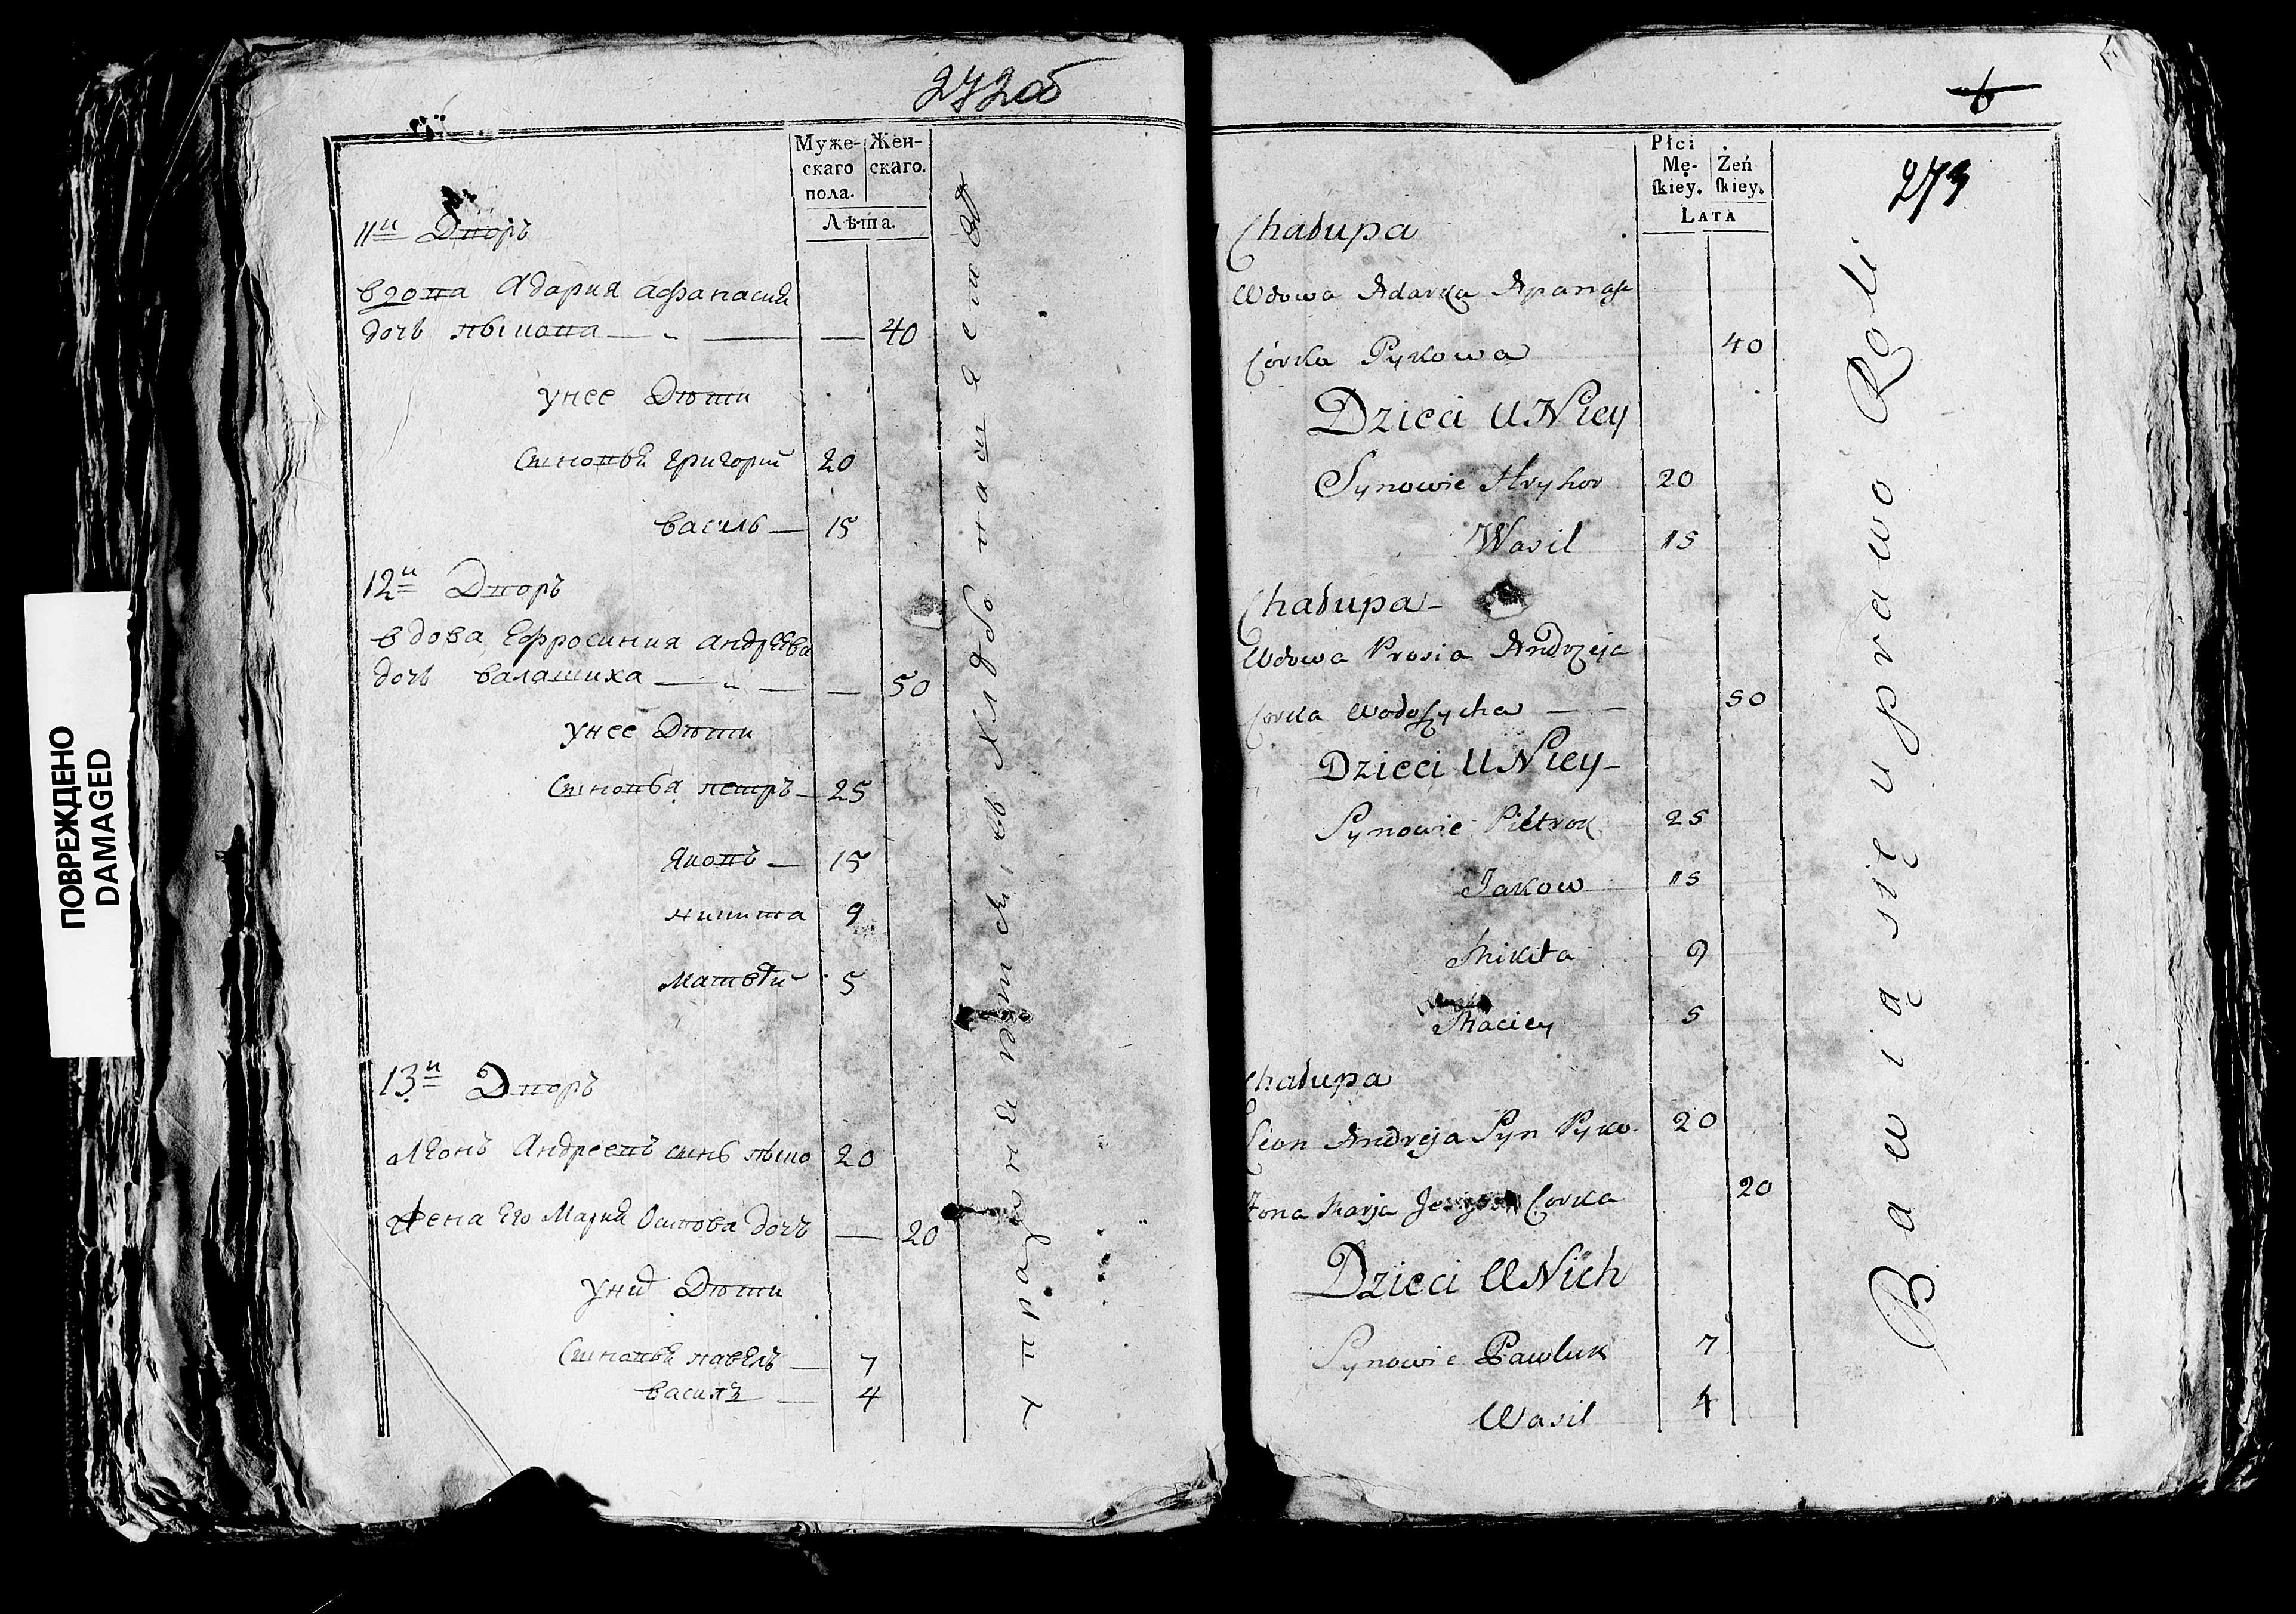 ПОВРЕЖДЕНО
DAMAGED
272об
Муже-скаго пола. Жен-скаго.
Лѣта.
11й Дворъ
вдова Адария Афанасия
дочь пыкова — — — 40
унее Дѣти
Синовья Григорий 20
василь — 15
12й Дворъ
вдова Ефросиния андреева
дочь валашиха — — — 50
унее Дѣти
Синовья петръ — 25
Яковъ — 15
никита 9
матвѣй 5
13й Дворъ
Леонъ Андреевъ синъ пыко 20
жена Его Мария Осипова дочъ — 20
унид Дѣти
Синовья павелъ — 7
василъ — 4
упражняютси в хлѣбо
6
273
Płci Mę-ſkiey. Żeń ſkiey.
Lata
Chałupa
Wdowa Adarka Apanaſa
Córka Pykowa 40
Dzieci U Niey
Synowie Hryhor 20
Wasil 15
Chałupa -
Wdowa Prosia Andrzeja
Corka Wołoszycha — — 50
Dzieci U Niey -
Synowie Pietrok 25
Jakow 15
Mikita 9
Maciey 5
Chałupa
Leon Andreja Syn Pyko. 20
Żona Marja Corka 20
Dzieci U Nich
Synowie Pawluk 7
Wasil 4
Bawią się uprawo Roli